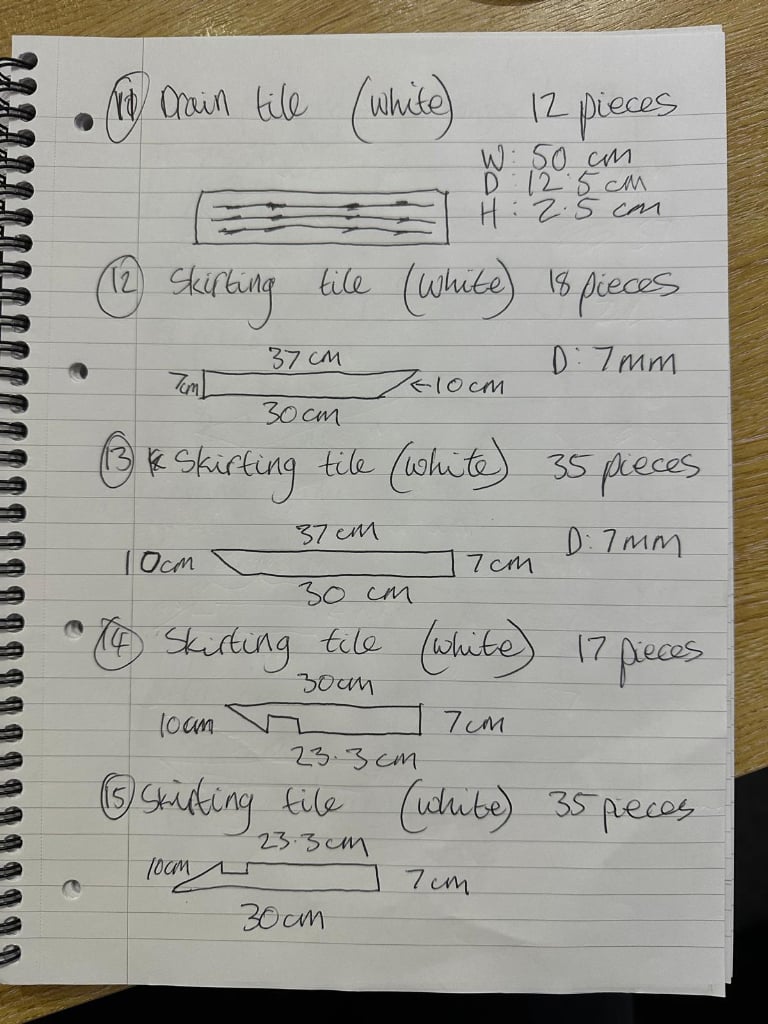 11 Drain tile (white) 12 pieces
W: 50 cm
D: 12.5 cm
H: 2.5 cm
12 Skirting tile (white) 18 pieces
37 cm D: 7mm
7cm ←10cm
30cm
13 Skirting tile (white) 35 pieces
37 cm D: 7mm
10cm 7 cm
30 cm
14 Skirting tile (white) 17 pieces
30cm
10cm 7 cm
23.3 cm
15 Skirting tile (white) 35 pieces
23.3cm
10cm 7 cm
30cm